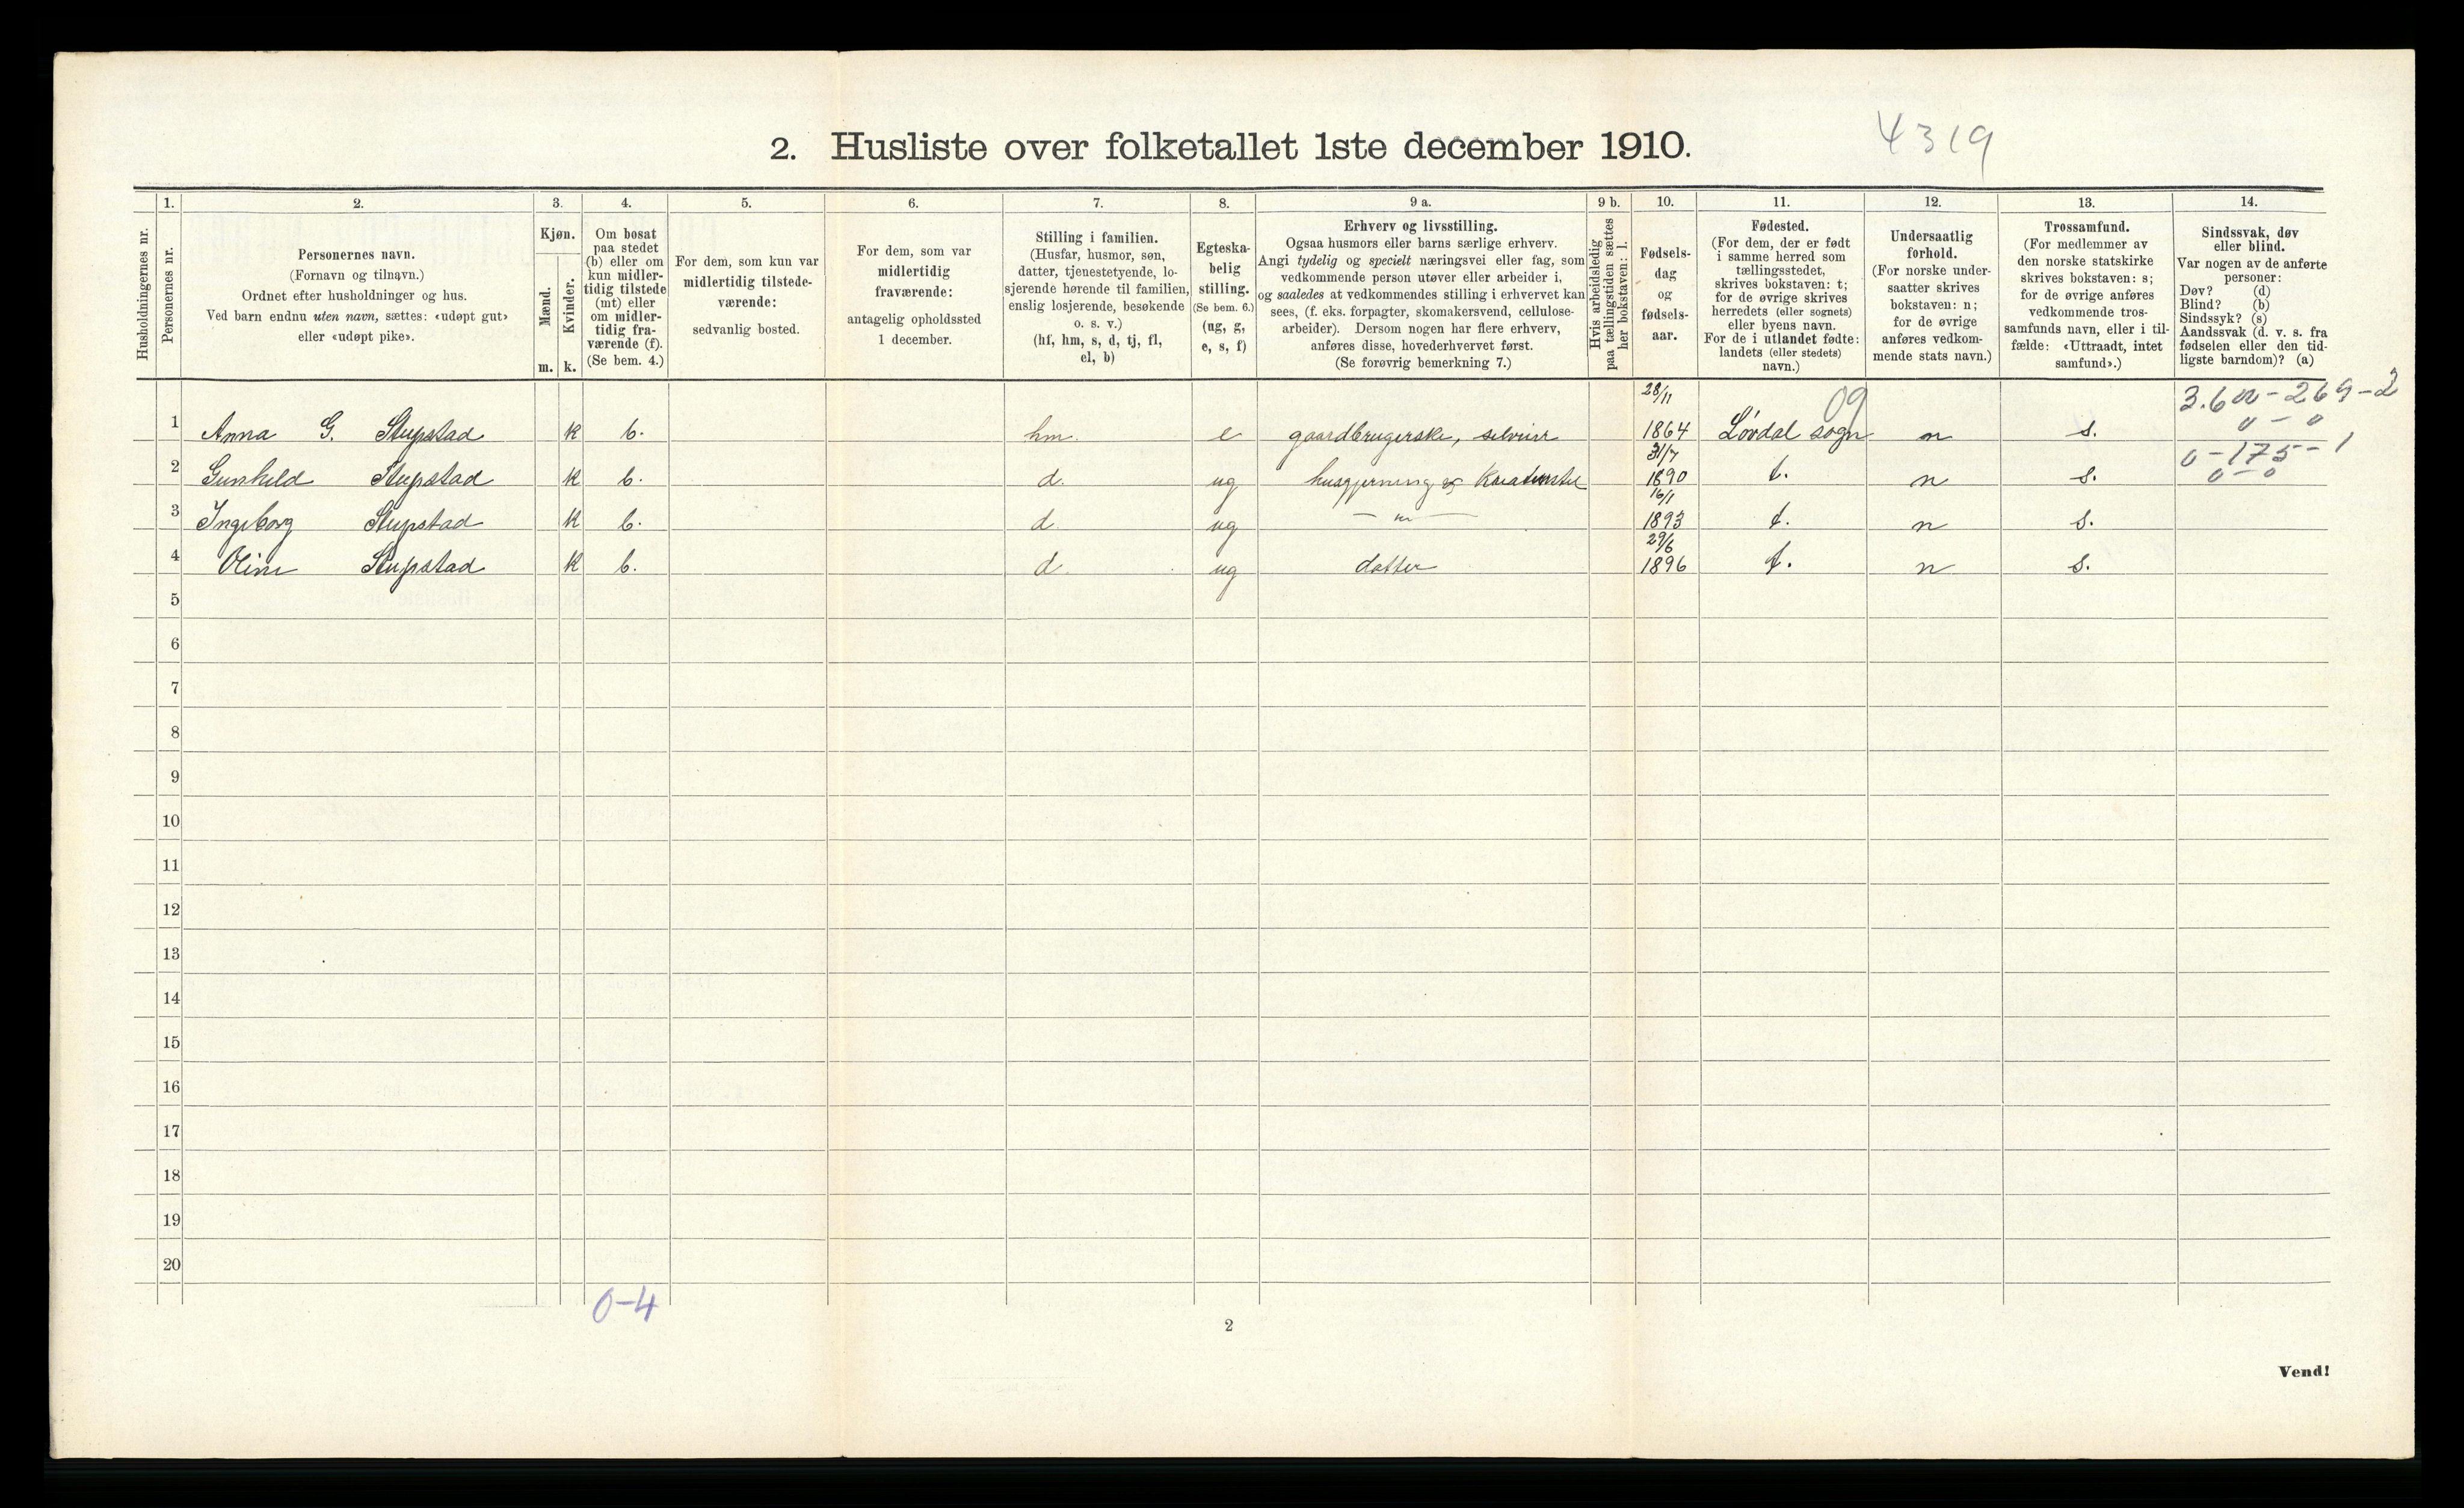 2. Husliste over folketallet 1ste december 1910.
4319
Husholdningernes nr.
1.
Personernes nr.
2.
Personernes navn.
(Fornavn og tilnavn.)
Ordnet efter husholdninger og hus.
Ved barn endnu uten navn, sættes: «udøpt gut»
eller «udøpt pike».
3.
Kjøn.
Mænd.
Kvinder.
m. k.
4.
Om bosat
paa stedet
(b) eller om
kun midler-
tidig tilstede
(mt) eller
om midler-
tidig fra-
værende (f).
(Se bem. 4.)
5.
For dem, som kun var
midlertidig tilstede-
værende:
sedvanlig bosted.
6.
For dem, som var
midlertidig
fraværende:
antagelig opholdssted
1 december.
7.
Stilling i familien.
(Husfar, husmor, søn,
datter, tjenestetyende, lo-
sjerende hørende til familien,
enslig losjerende, besøkende
o. s. v.)
(hf, hm, s, d, tj, fl,
el, b)
8.
Egteska-
belig
stilling.
(Se bem. 6.)
(ug, g,
e, s, f)
9 a.
Erhverv og livsstilling.
Ogsaa husmors eller barns særlige erhverv.
Angi tydelig og specielt næringsvei eller fag, som
vedkommende person utøver eller arbeider i,
og saaledes at vedkommendes stilling i erhvervet kan
sees, (f. eks. forpagter, skomakersvend, cellulose-
arbeider). Dersom nogen har flere erhverv,
anføres disse, hovederhvervet først.
(Se forøvrig bemerkning 7.)
9 b.
Hvis arbeidsledig
paa tællingstiden sættes
her bokstaven: l.
10.
Fødsels-
dag
og
fødsels-
aar.
11.
Fødested.
(For dem, der er født
i samme herred som
tællingsstedet,
skrives bokstaven: t;
for de øvrige skrives
herredets (eller sognets)
eller byens navn.
For de i utlandet fødte:
landets (eller stedets)
navn.)
12.
Undersaatlig
forhold.
(For norske under-
saatter skrives
bokstaven: n;
for de øvrige
anføres vedkom-
mende stats navn.)
13.
Trossamfund.
(For medlemmer av
den norske statskirke
skrives bokstaven: s;
for de øvrige anføres
vedkommende tros-
samfunds navn, eller i til-
fælde: «Uttraadt, intet
samfund».)
14.
Sindssvak, døv
eller blind.
Var nogen av de anførte
personer:
Døv? (d)
Blind? (b)
Sindssyk? (s)
Aandssvak (d. v. s. fra
fødselen eller den tid-
ligste barndom)? (a)
28/11 09 3.600-269-2
1 Anna G. Stupstad k b. hm. e gaardbrugerske, selveier 1864 Lørdal sogn n s. 0-0
31/7 0-175-1
2 Gunhild Stupstad k b. d. ug husgjerning og Kreaturstel 1890 t. n s. 0-0
16/1
3 Ingeborg Stupstad k b. d ug — " — 1893 t. n s.
29/6
4 Oline Stupstad k b. d ug datter 1896 t. n s.
5
6
7
8
9
10
11
12
13
14
15
16
17
18
19
20
0-4
2
Vend!